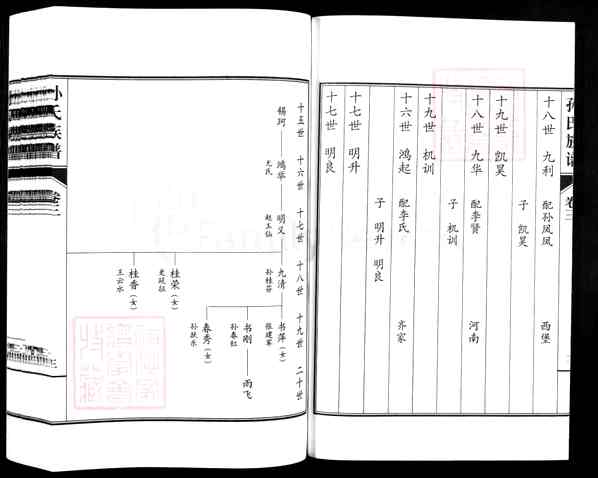 孙氏族谱 卷三
十八世 九利 配孙凤凤 西堡
子 凯昊
十九世 凯昊
十八世 九华 配李贤 河南
子 机训
十九世 机训
十六世 鸿起 配李氏 齐家
子 明升 明良
十七世 明升
十七世 明良
十五世 十六世 十七世 十八世 十九世 二十世
锡珂 鸿华 明义 九清 书萍（女）
尤氏 赵玉仙 孙桂芬 张建军
书刚 雨飞
孙春红
春秀（女）
孙扶乐
桂荣（女）
史延征
桂香（女）
王云水
孙氏族谱 卷三